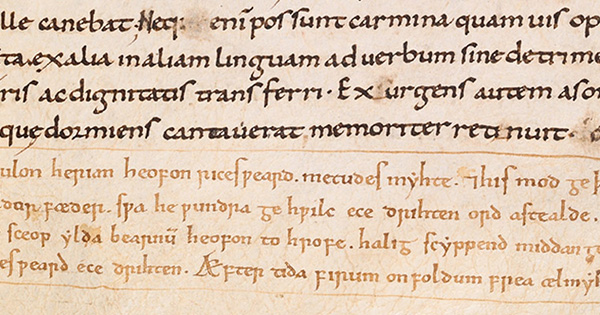 lle canebat. Neq; enī possunt carmina quamuis op
ta. ex alia in aliam linguam ad verbum sine detrime
ris ac dignitatis transferri. Exurgens autem a som
que dormiens cantaverat memoriter retinuit.
ulon herian heofon rices ƿeard. metudes myhte. ⁊ his mod ge
dor fæder. sƿa he ƿundra gehƿilc ece drihten ord astealde.
sceop ylda bearnū heofon to hrofe. halig scyppend middan
es ƿeard ece drihten. Æfter tida firum on foldum frea ælmyh